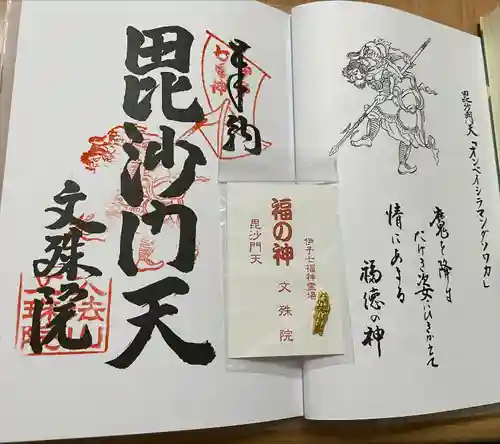 奉納
毘沙門天
文殊院
福の神
伊予七福神霊場
毘沙門天
文殊院
毘沙門天
「オンベイシラマンダヤソワカ」
魔を降す
たけき姿にひきかへて
情にあまる
福徳の神